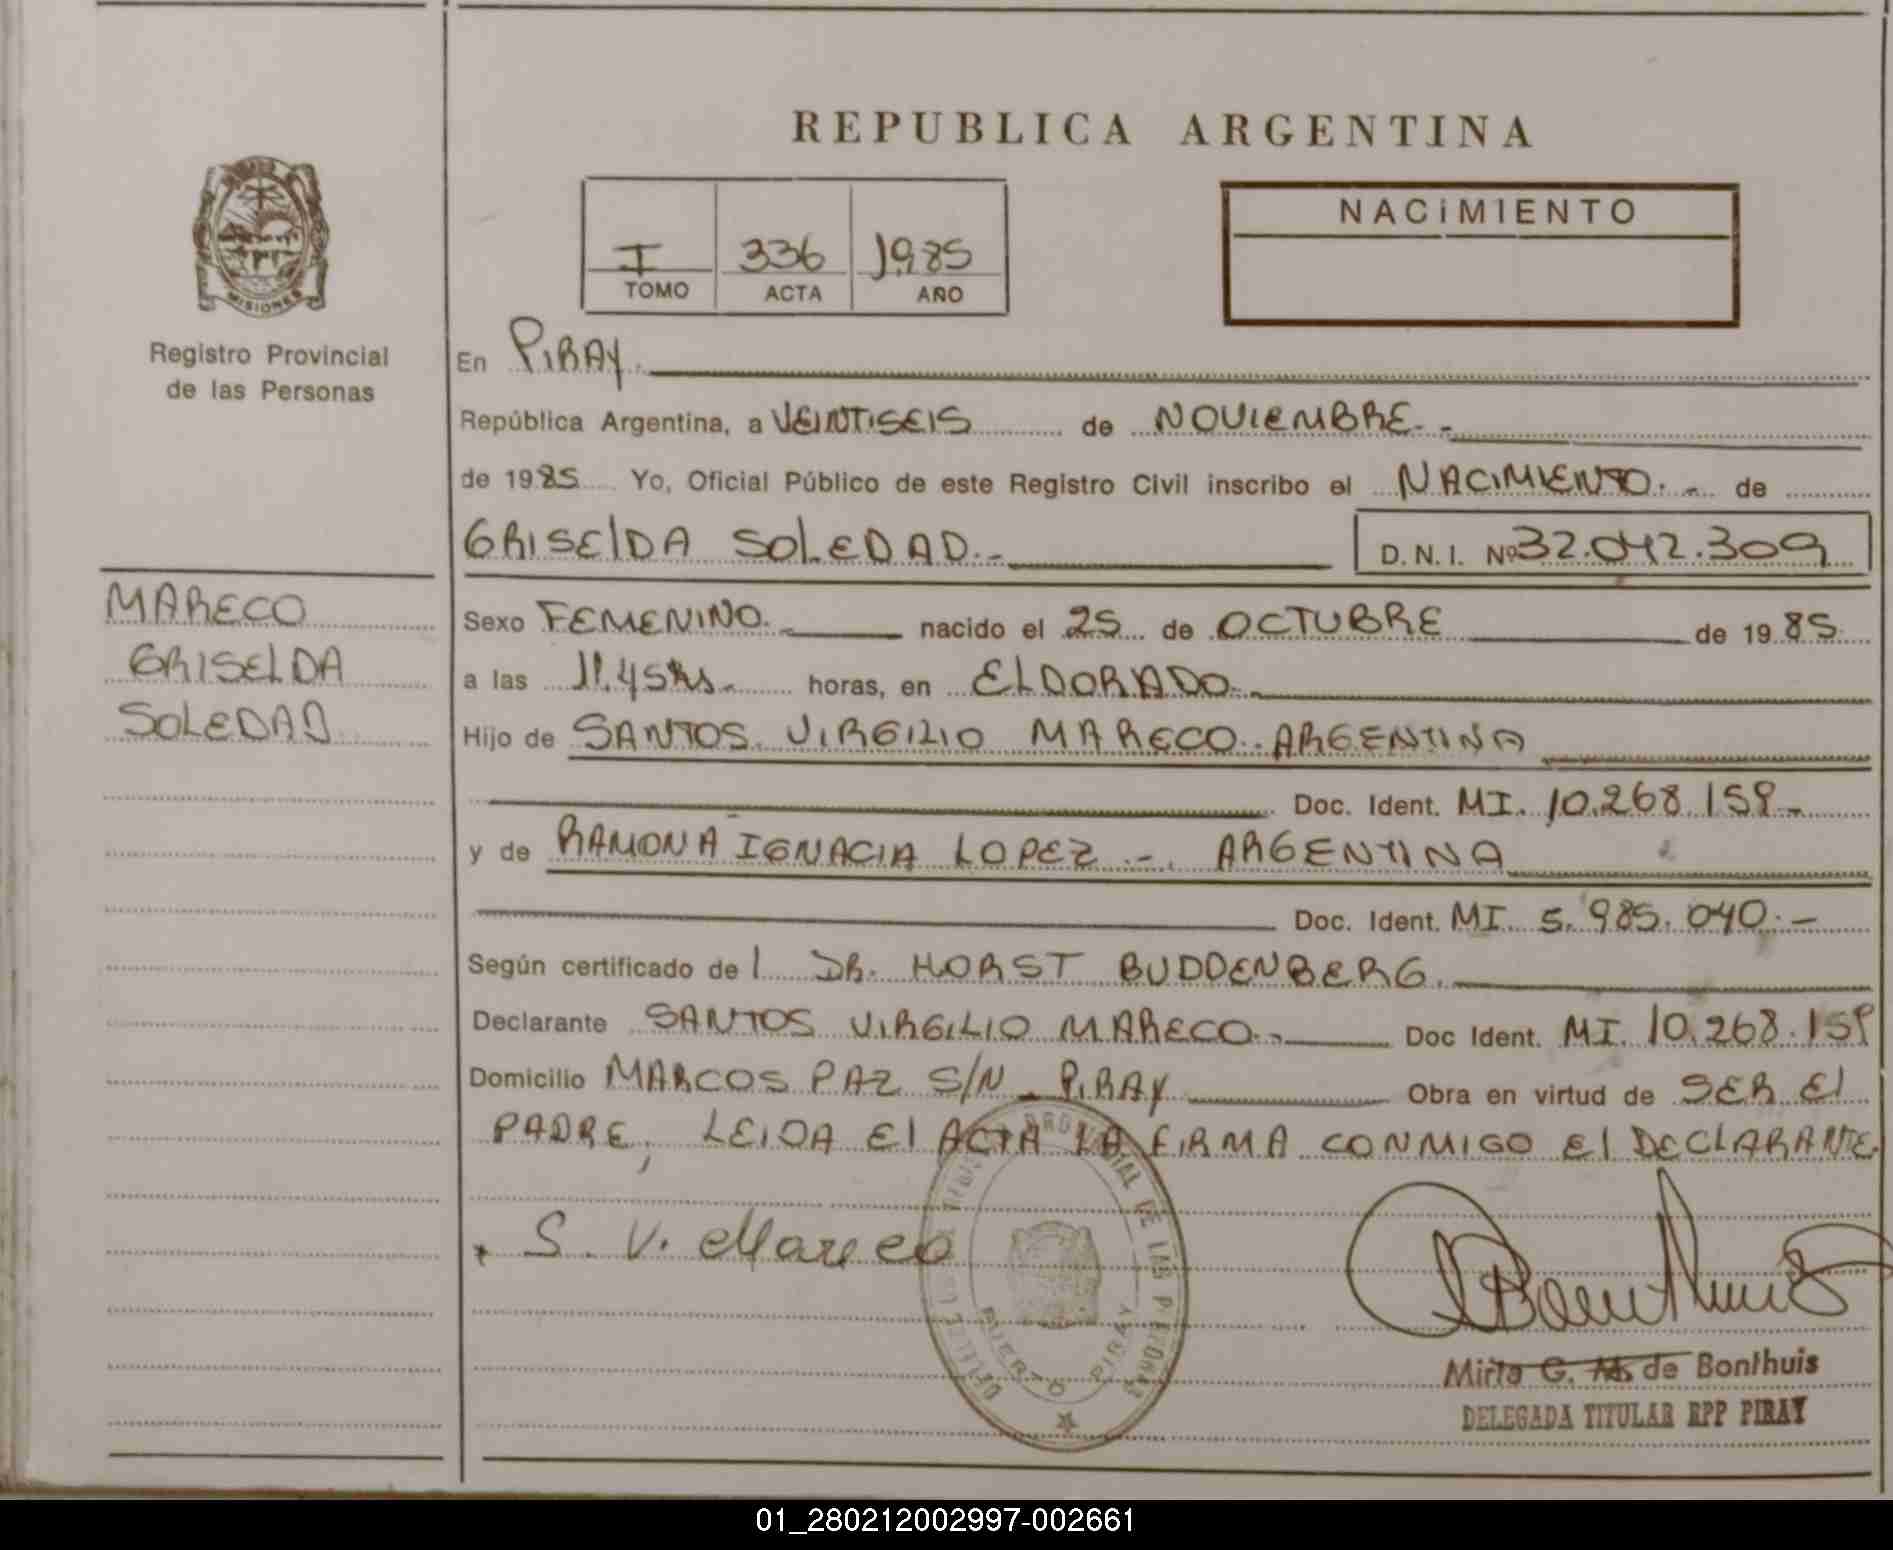 REPUBLICA ARGENTINA
MISIONES
Registro Provincial
de las Personas
I 336 1985
TOMO ACTA AÑO
NACIMIENTO
En PIRAY.
República Argentina, a VEINTISEIS de NOVIEMBRE.-
de 1985 Yo, Oficial Público de este Registro Civil inscribo el NACIMIENTO.- de
GRISELDA SOLEDAD.- D.N.I. Nº 32.042.309
MARECO
GRISELDA
SOLEDAD
Sexo FEMENINO.- nacido el 25 de OCTUBRE de 1985
a las 11.45hs.- horas, en ELDORADO.-
Hijo de SANTOS VIRGILIO MARECO.. ARGENTINA
Doc. Ident. MI. 10.268.159-
y de RAMONA IGNACIA LOPEZ.-. ARGENTINA
Doc. Ident. MI. 5.985.040.-
Según certificado de l DR. HORST BUDDENBERG.
Declarante SANTOS VIRGILIO MARECO.- Doc Ident. MI. 10.268.159
Domicilio MARCOS PAZ S/N - PIRAY Obra en virtud de SER El
PADRE, LEIDA El ACTA LA FIRMA CONMIGO El DECLARANTE.
S. V. Mareco
PROVINCIAL DE LAS PERSONAS
PUERTO PIRAY
Mirta G. M. de Bonthuis
DELEGADA TITULAR RPP PIRAY
01_280212002997-002661